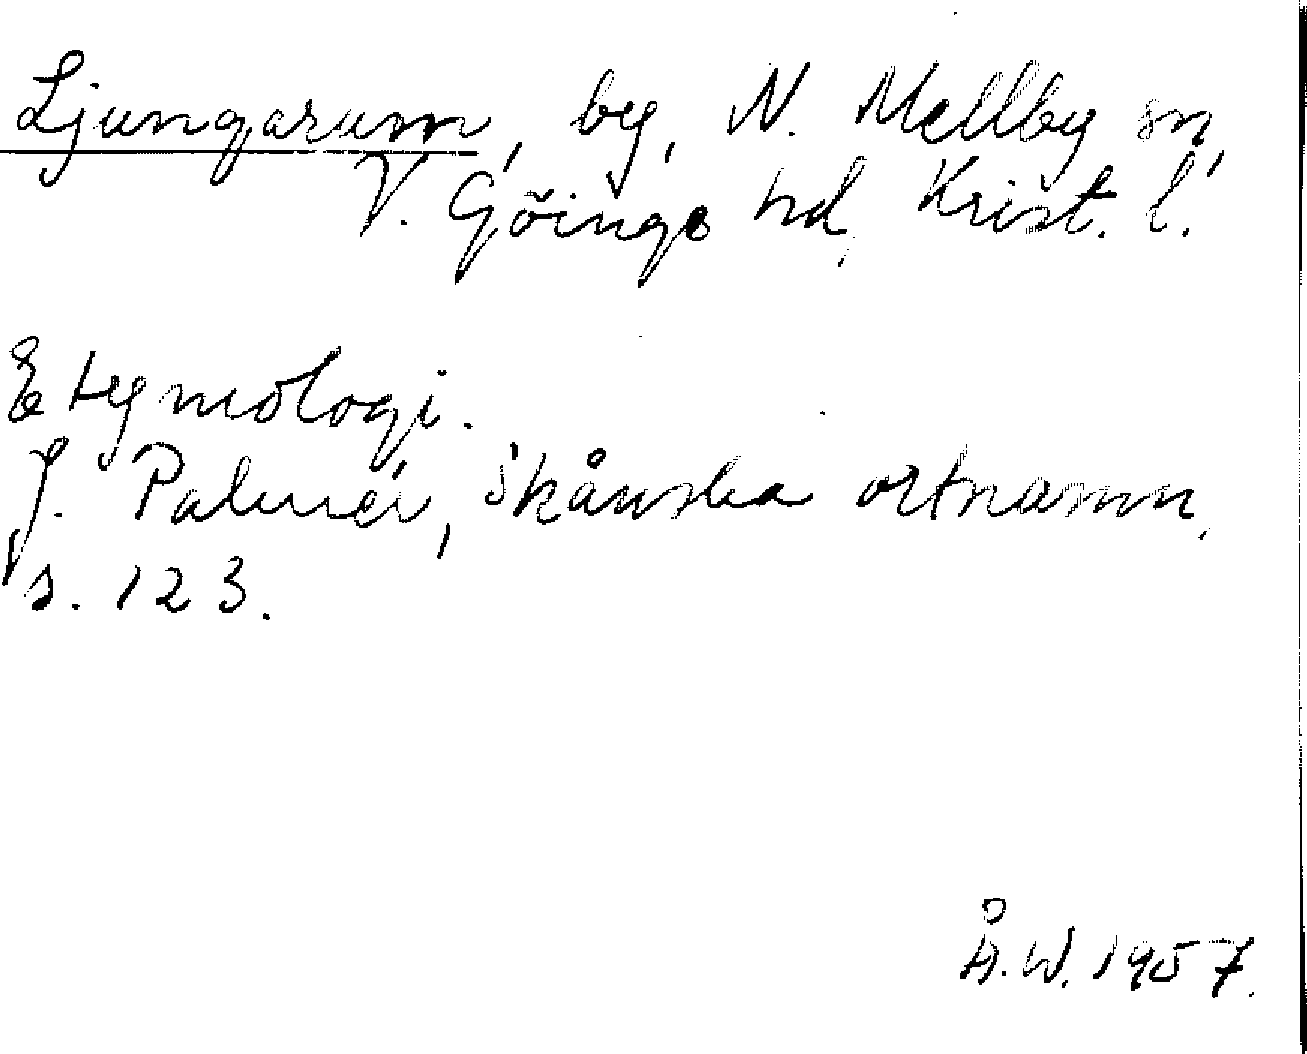 Ljungarum, by, N. Mellby sn,
V. Göinge hd, Krist. l.
Etymologi.
J. Palmér, Skånska ortnamn,
s. 123.
Å.W. 1957.